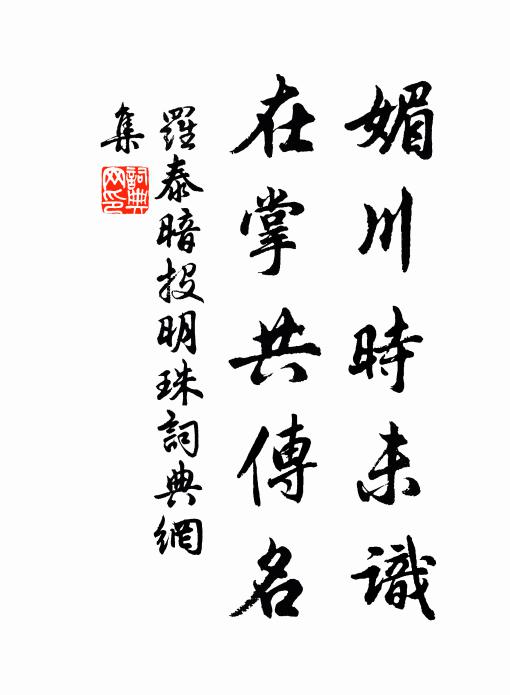 媚川時未識
在掌共傳名
羅泰暗投明珠詞典網
集
詞典网印